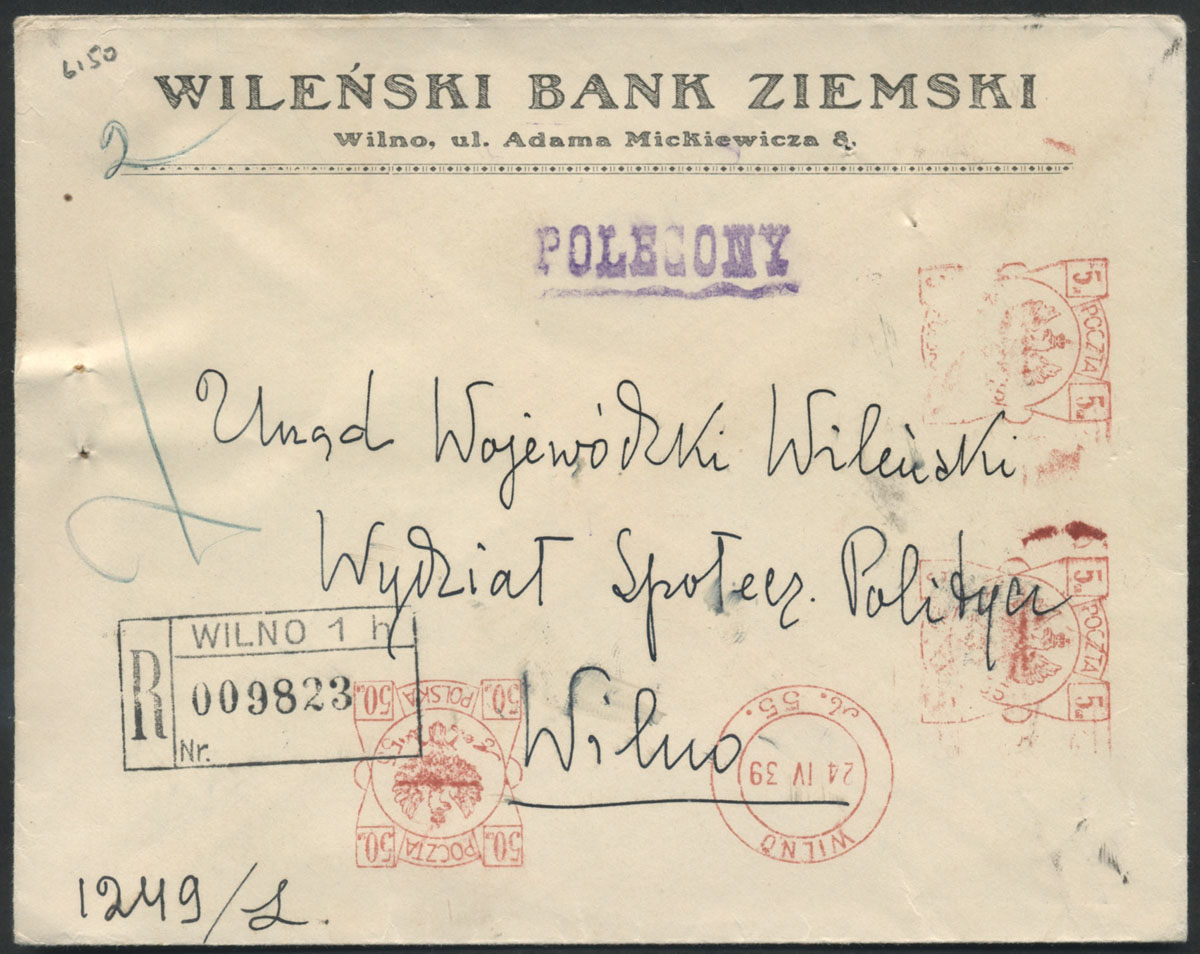 6150
WILEŃSKI BANK ZIEMSKI
Wilno, ul. Adama Mickiewicza 8.
2
POLECONY
5
POCZTA
5
Urząd Wojewódzki Wileński
Wydział Społecz. Politycz
5
POCZTA
5
Wilno
WILNO 1 h
R
009823
Nr.
50
POLSKA
50
50
POCZTA
50
55.
24 IV 39
WILNO
1249/L.